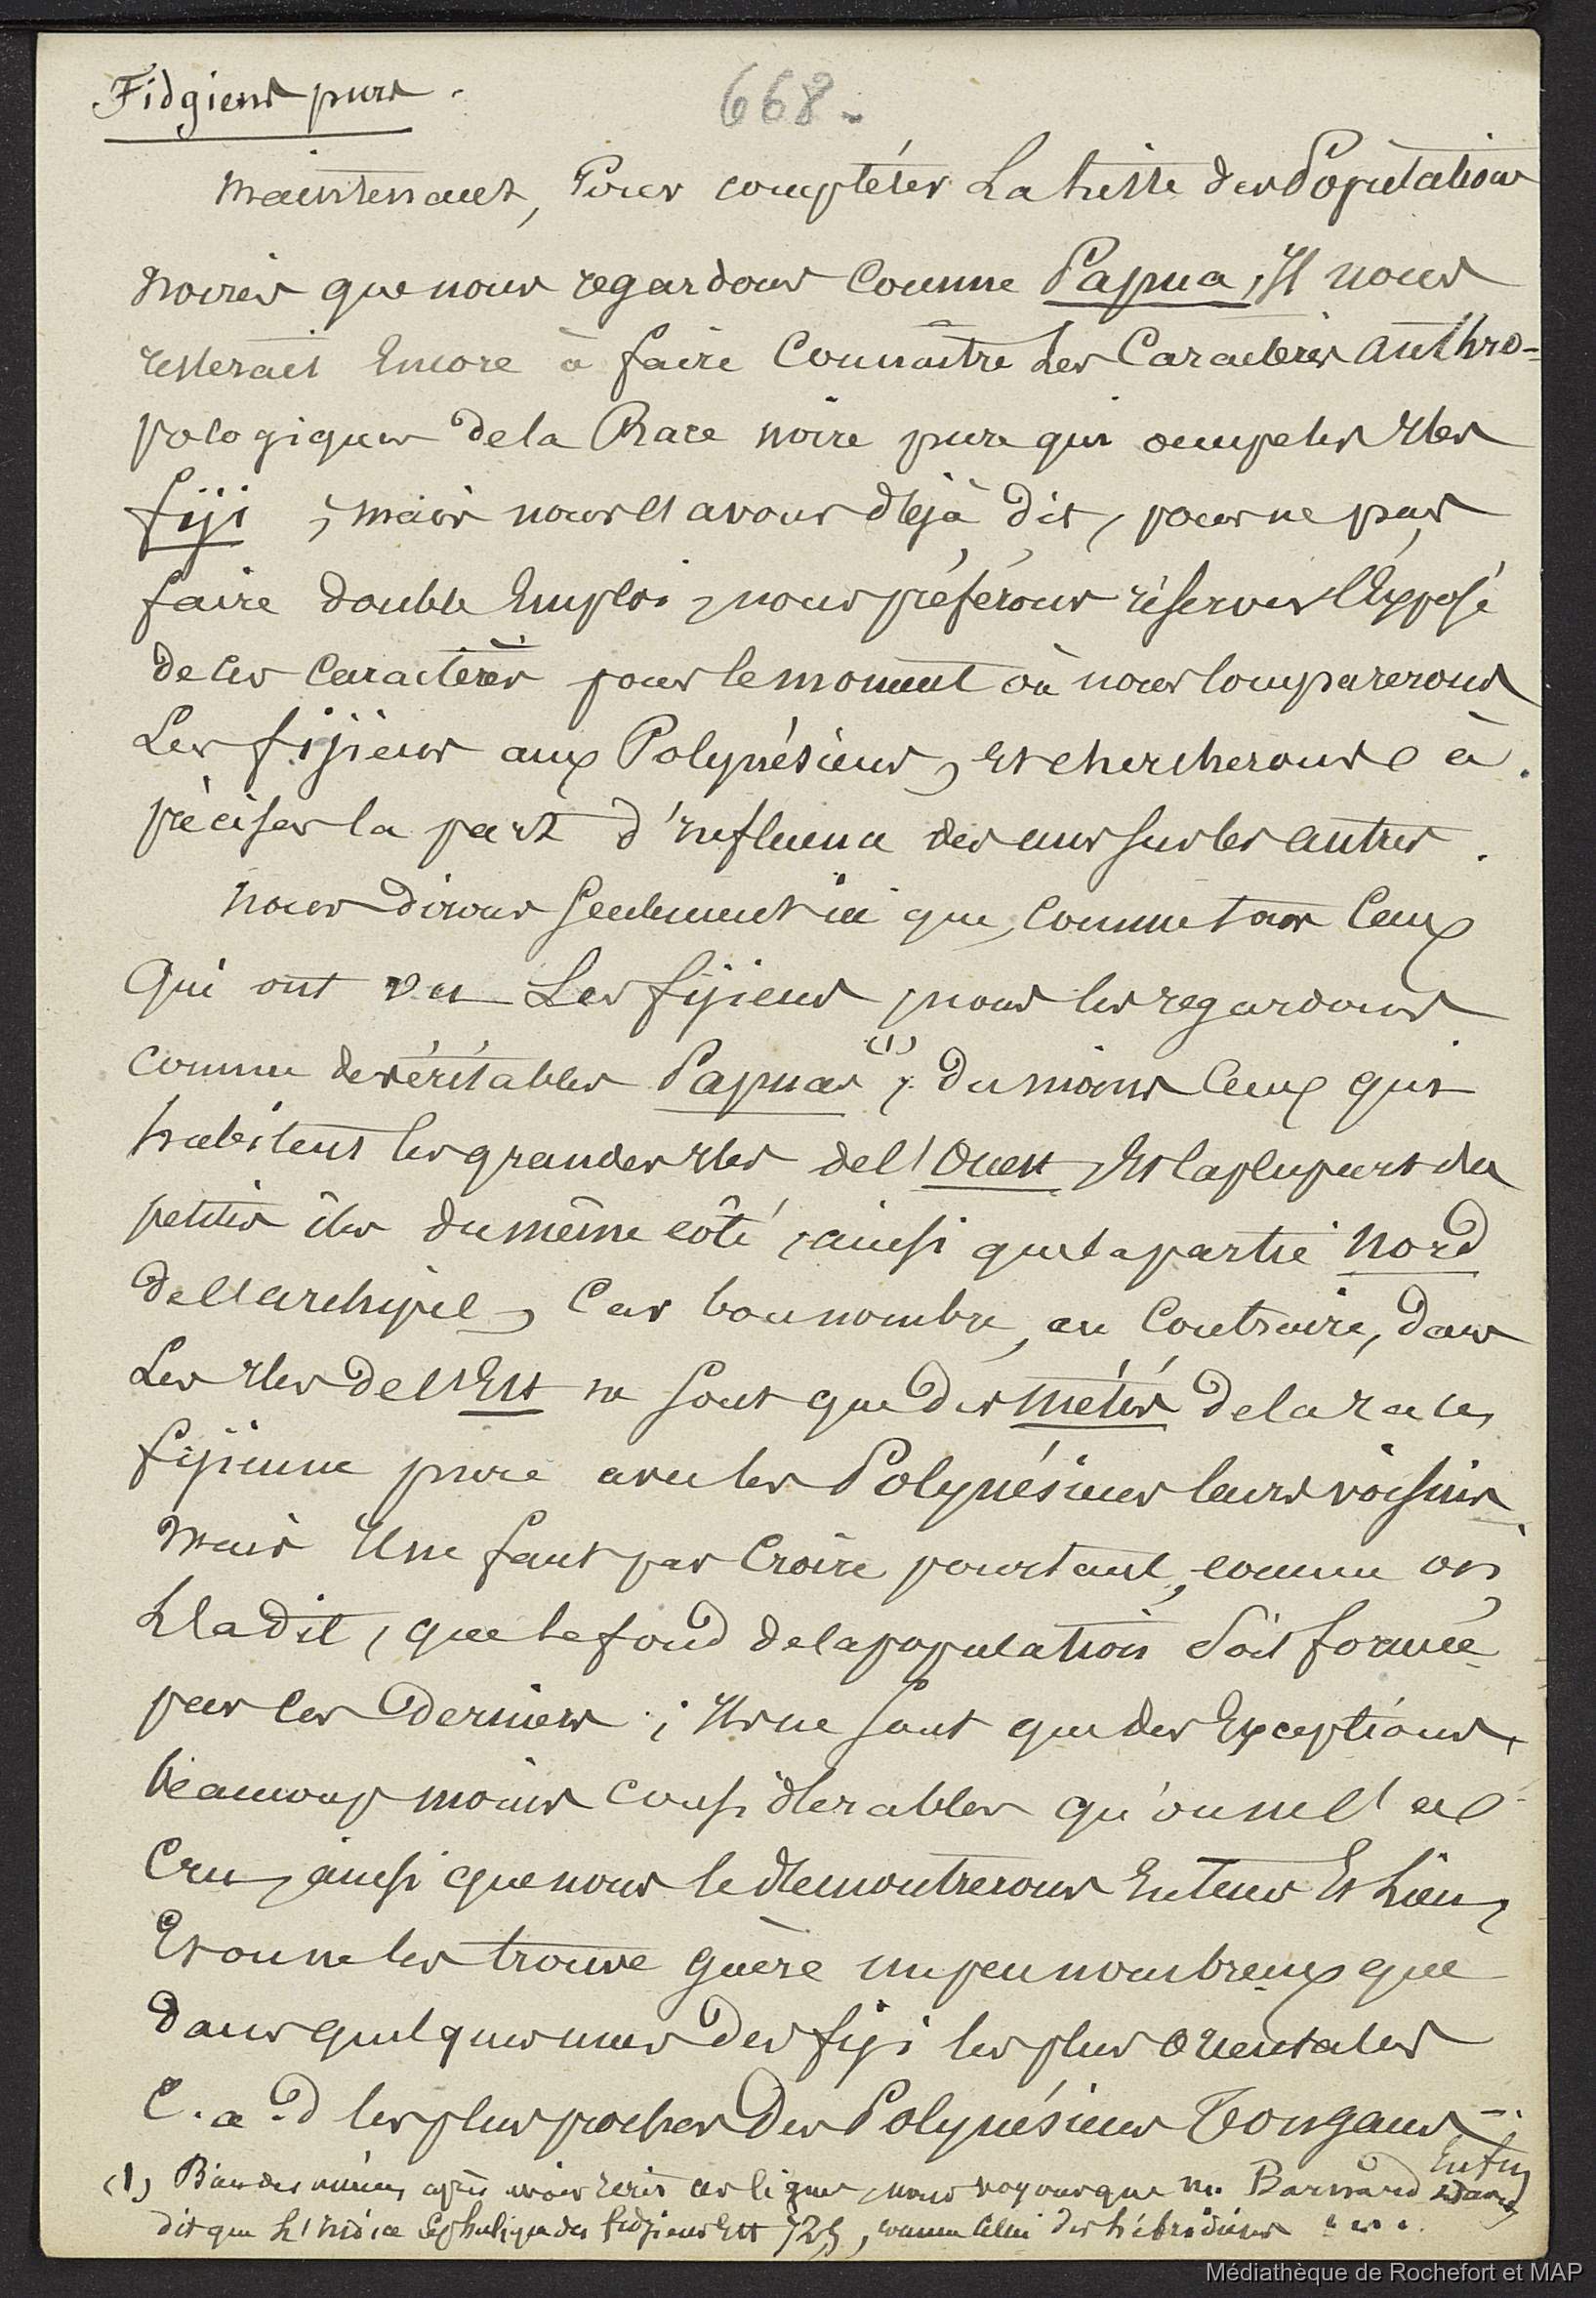 Fidgiens purs.
668.
Maintenant, Pour compléter La liste des Populations
noires que nous regardons Comme Papua, Il nous
resterait Encore à faire Connaître les Caractères anthro-
pologiques de la Race noire pure qui occupe les Iles
fiji ; mais nous l'avons déjà dit, pour ne pas
faire double Emploi, nous préférons réserver l'Exposé
de ces Caractères pour le moment où nous comparerons
Les fijiens aux Polynésiens, et chercherons à
préciser la part d'Influence des uns sur les autres.
Nous dirons seulement ici que, Comme tous Ceux
Qui ont vu Les fijiens, nous les regardons
comme de véritables Papuas (1), du moins Ceux qui
habitent les grandes Iles de l'Ouest, Et la plupart des
petites îles du même côté, ainsi que la partie Nord
de l'archipel, Car bon nombre, au Contraire, dans
Les Iles de l'Est ne sont que des métis de la race
fijienne pure avec les Polynésiens leurs voisins.
Mais Il ne faut pas Croire pourtant, comme on
L'a dit, que le fond de la population soit formée
par ces Derniers ; Ils ne sont que des Exceptions,
beaucoup moins considérables qu'on ne l'a
Cru, ainsi que nous le démontrerons En temps Et Lieu,
Et on ne les trouve guère un peu nombreux que
dans quelques unes des fiji les plus orientales
C. a. d les plus proches des Polynésiens Tongans.
(1) Bien des années après avoir écrit ces lignes, nous voyons que M. Barnard Davis
dit que L'Indice Céphalique des fidjiens Est 725, comme Celui des hébridiens
Enfin
Médiathèque de Rochefort et MAP